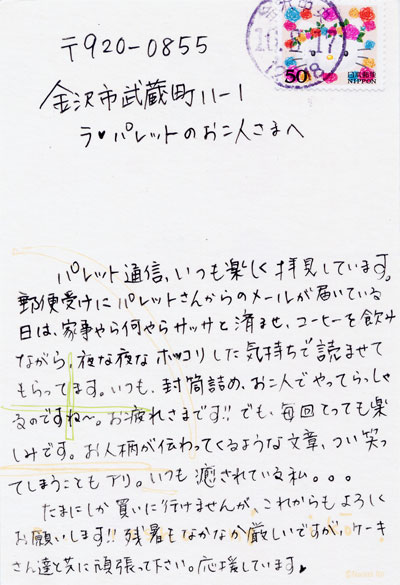 〒920-0855
金沢市武蔵町11-1
ラ♥パレットのお二人さまへ
50
日本郵便
NIPPON
パレット通信、いつも楽しく拝見しています。
郵便受けにパレットさんからのメールが届いている
日は、家事やら何やらサッサと済ませ、コーヒーを飲み
ながら、夜な夜なホッコリした気持ちで読ませて
もらってます。いつも、封筒詰め、お二人でやってらっしゃ
るのですね〜。お疲れさまです!!でも、毎回とっても楽
しみです。お人柄が伝わってくるような文章、つい笑っ
てしまうこともアリ。いつも癒されている私。。。
たまにしか買いに行けませんが、これからもよろしく
お願いします!!残暑もなかなか厳しいですが、ケーキ
さん達と共に頑張って下さい。応援しています♥